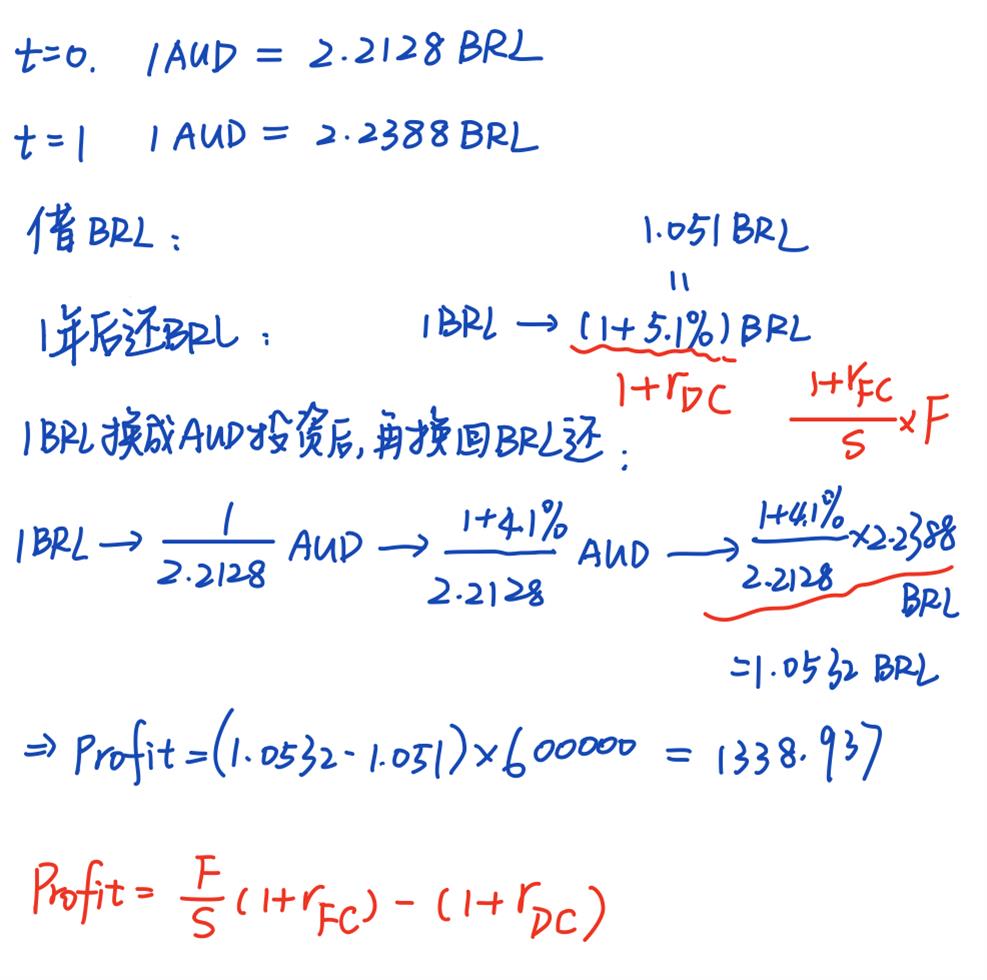 t=0. 1AUD = 2.2128 BRL
t=1 1 AUD = 2.2388 BRL
借BRL：
1.051 BRL
=
1年后还BRL： 1BRL → (1+5.1%) BRL
1+r_DC
(1+r_FC)/S × F
1BRL换成AUD投资后,再换回BRL还：
1BRL → 1/2.2128 AUD → (1+4.1%)/2.2128 AUD → (1+4.1%)/2.2128 ×2.2388 BRL
=1.0532 BRL
⇒ Profit=(1.0532-1.051)×600000 = 1338.937
Profit= F/S (1+r_FC) - (1+r_DC)